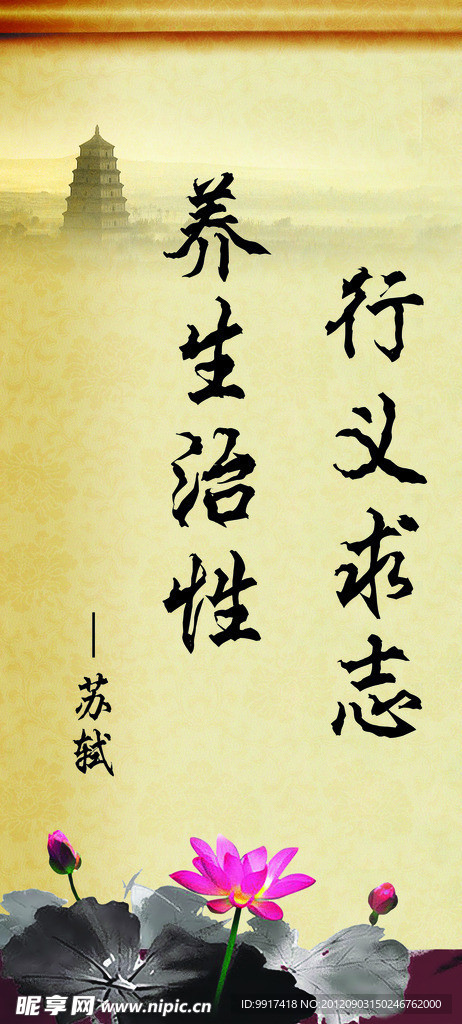 行义求志
养生治性
—苏轼
昵享网 www.nipic.cn
ID:9917418 NO:20120903150246762000